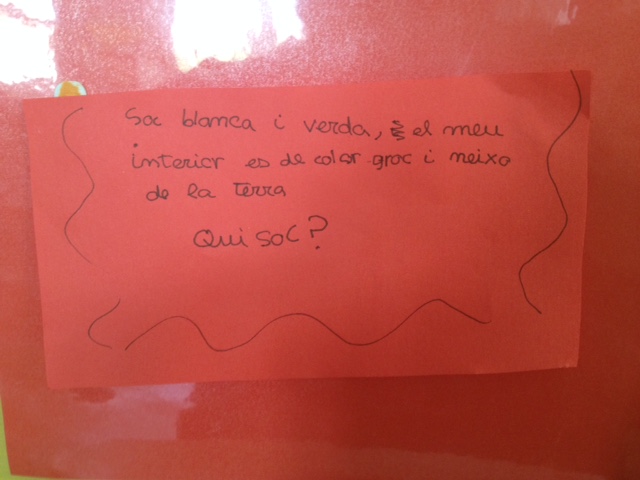 Soc blanca i verda, el meu
interior es de color groc i neixo
de la terra
Qui soc?